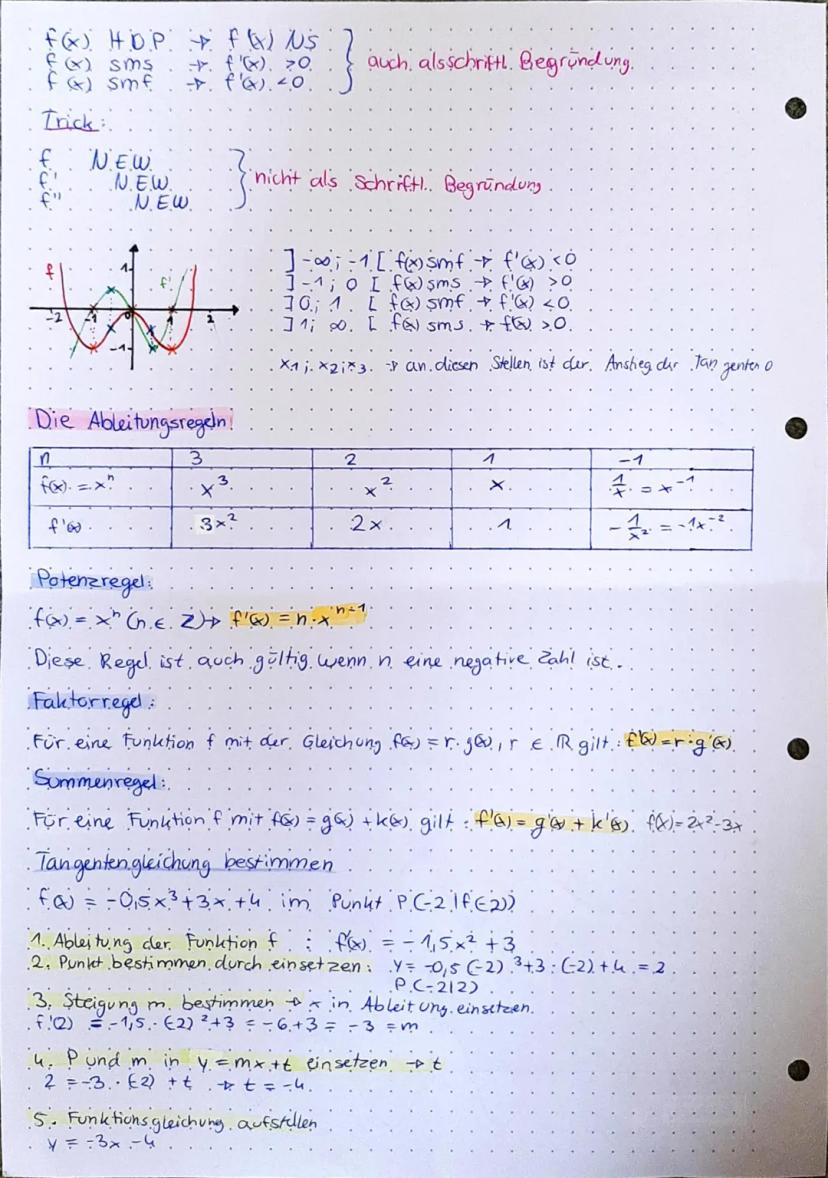 f(x) H.D.P. → f'(x) NS
f(x) sms → f'(x) >0
f(x) smf → f'(x) <0
auch als schriftl. Begründung.
Trick:
f N.E.W.
f' N.E.W.
f'' N.E.W.
nicht als Schriftl. Begründung
f f' 1
-2 -1 0 1 2
-1
]-∞; -1[ f(x) smf → f'(x) <0
]-1; 0 [ f(x) sms → f'(x) >0
]0; 1 [ f(x) smf → f'(x) <0
]1; ∞ [ f(x) sms → f(x) >0
x1; x2; x3 → an diesen Stellen ist der Anstieg der Tangenten 0
Die Ableitungsregeln:
n 3 2 1 -1
f(x) = xⁿ x³ x² x 1/x = x⁻¹
f'(x) 3x² 2x 1 -1/x² = -1x⁻²
Potenzregel:
f(x) = xⁿ (n ∈ Z) → f'(x) = n·xⁿ⁻¹
Diese Regel ist auch gültig wenn n eine negative Zahl ist.
Faktorregel:
Für eine Funktion f mit der Gleichung f(x) = r·g(x), r ∈ ℝ gilt: f'(x) = r·g'(x)
Summenregel:
Für eine Funktion f mit f(x) = g(x) + k(x) gilt: f'(x) = g'(x) + k'(x) f(x) = 2x²-3x
Tangentengleichung bestimmen
f(x) = -0,5x³+3x+4 im Punkt P(-2|f(-2))
1. Ableitung der Funktion f : f'(x) = -1,5x² +3
2. Punkt bestimmen durch einsetzen: y = -0,5(-2)³+3·(-2)+4 = 2
P(-2|2)
3. Steigung m bestimmen → x in Ableitung einsetzen.
f'(2) = -1,5·(-2)²+3 = -6+3 = -3 = m
4. P und m in y = mx+t einsetzen → t
2 = -3·(-2) +t → t = -4
5. Funktionsgleichung aufstellen
y = -3x-4